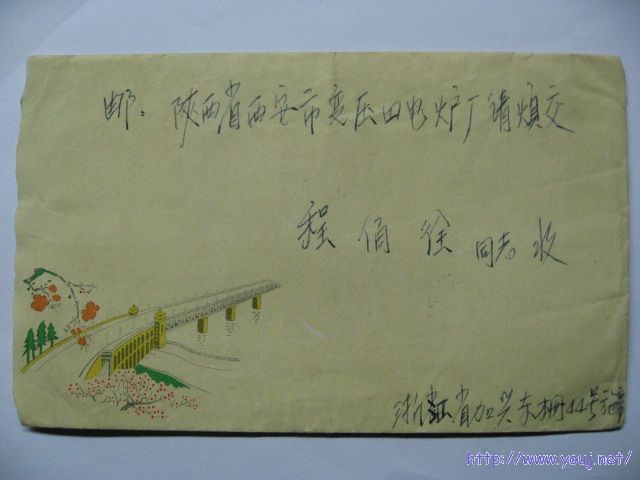 邮：陕西省西安市变压四电炉厂请烦交
程佰经同志收
浙江省加兴东栅44号
http://www.youj.net/